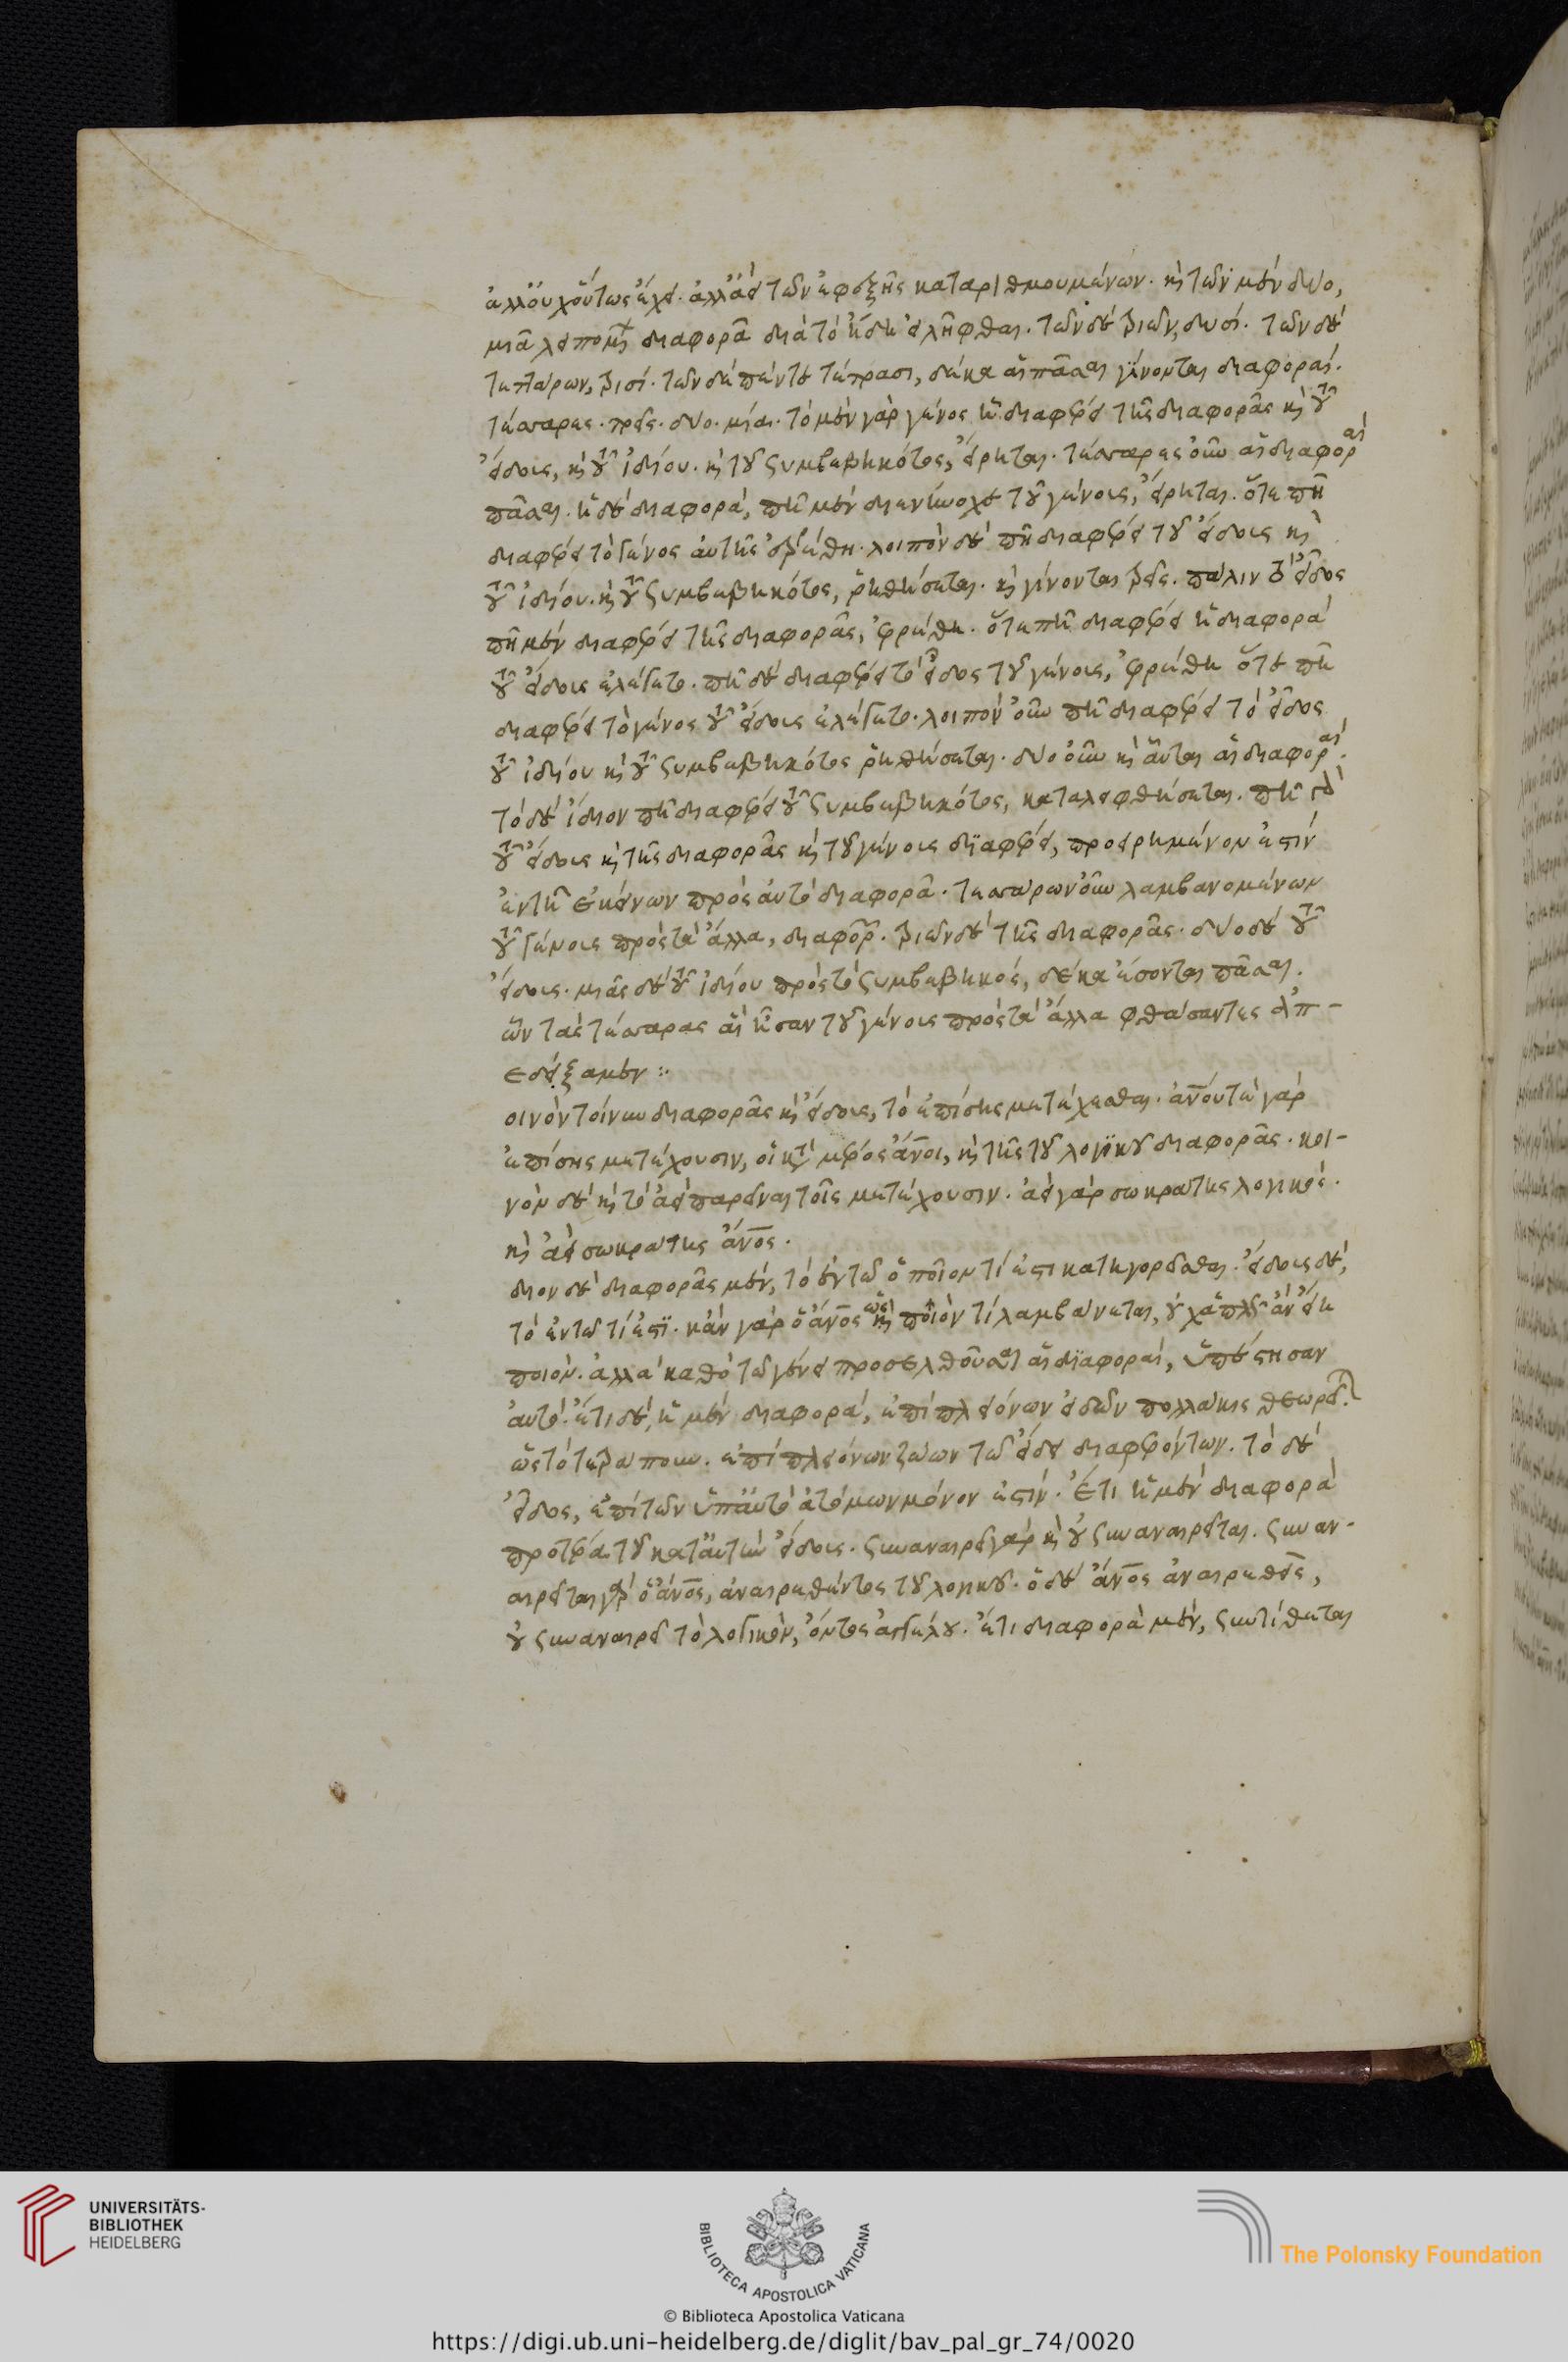 ἀλλ' οὐχ οὕτως ἔχει. ἀλλ' ἀεὶ τῶν ἐφεξῆς καταριθμουμένων. καὶ τῶν μὲν δύο,
μιᾶ λειπομ διαφορᾶ διὰ τὸ ἤδη εἰλῆφθαι. τῶν δὲ τριῶν, δυσί. τῶν δὲ
τεττάρων, τρισί. τῶν δὲ πέντε τέτρασι, δέκα αἱ πᾶσαι γίνονται διαφοραί.
τέσσαρες. τρεῖς. δύο. μία. τὸ μὲν γὰρ γένος ἧ διαφέρει τῆς διαφορᾶς καὶ τοῦ
εἴδους, καὶ τοῦ ἰδίου. καὶ τοῦ συμβεβηκότος, εἴρηται. τέσσαρες οὖν αἱ διαφοραὶ
πᾶσαι. ἡ δὲ διαφορά, πῆ μὲν διενήνοχε τοῦ γένους, εἴρηται. ὅτε πῆ
διαφέρει τὸ γένος αὐτῆς ἐρρέθη. λοιπὸν δὲ πῆ διαφέρει τοῦ εἴδους καὶ
τοῦ ἰδίου. καὶ τοῦ συμβεβηκότος, ῥηθήσεται. καὶ γίνονται τρεῖς. πάλιν τὸ εἶδος
πῆ μὲν διαφέρει τῆς διαφορᾶς, ἐρρέθη. ὅτε πῆ διαφέρει ἡ διαφορά
τοῦ εἴδους ἐλέγετο. πῆ δὲ διαφέρει τὸ εἶδος τοῦ γένους, ἐρρέθη ὅτε πῆ
διαφέρει τὸ γένος τοῦ εἴδους ἐλέγετο. λοιπὸν οὖν πῆ διαφέρει τὸ εἶδος
τοῦ ἰδίου καὶ τοῦ συμβεβηκότος ῥηθήσεται. δύο οὖν καὶ αὗται αἱ διαφοραί.
τὸ δὲ ἴδιον πῆ διαφέρει τοῦ συμβεβηκότος, καταλειφθήσεται. πῆ γὰρ
τοῦ εἴδους καὶ τῆς διαφορᾶς καὶ τοῦ γένους διαφέρει, προειρημένον ἐστὶν
ἐν τῆ ἐκείνων πρὸς αὐτὸ διαφορᾶ. τεσσάρων οὖν λαμβανομένων
τοῦ γένους πρὸς τὰ ἄλλα, διαφορ. τριῶν δὲ τῆς διαφορᾶς. δύο δὲ τοῦ
εἴδους. μιᾶς δὲ τοῦ ἰδίου πρὸς τὸ συμβεβηκός, δέκα ἔσονται πᾶσαι.
ὧν τὰς τέσσαρας αἳ ἦσαν τοῦ γένους πρὸς τὰ ἄλλα φθάσαντες ἀπ-
εδείξαμεν :
οινὸν τοίνυν διαφορᾶς καὶ εἴδους, τὸ ἐπίσης μετέχεσθαι. ἀνου τὲ γὰρ
ἐπίσης μετέχουσιν, οἱ κατὰ μέρος ἄνοι, καὶ τῆς τοῦ λογικοῦ διαφορᾶς. κοι-
νὸν δὲ καὶ τὸ ἀεὶ παρεῖναι τοῖς μετέχουσιν. ἀεὶ γὰρ σωκράτης λογικός.
καὶ ἀεὶ σωκράτης ἄνος.
διον δὲ διαφορᾶς μὲν, τὸ ἐν τῶ ὁποῖον τί ἐστι κατηγορεῖσθαι. εἴδους δὲ,
τὸ ἐν τῶ τί ἐστι. κἂν γὰρ ὁ ἄνος ὡς καὶ ποιόν τι λαμβάνεται, οὐχ ἁπλῶς ἂν εἴη
ποιόν. ἀλλὰ καθὸ τῶ γένει προσελθοῦσαι αἱ διαφοραὶ, ὑπέστησαν
αὐτό. ἔτι δὲ, ἡ μὲν διαφορά, ἐπὶ πλειόνων εἰδῶν πολλάκις θεωρεῖται.
ὡς τὸ τετράπουν. ἐπὶ πλειόνων ζώων τῶ εἴδει διαφερόντων. τὸ δὲ
εἶδος, ἐπὶ τῶν ὑπ' αὐτὸ ἀτόμων μόνον ἐστίν. ἔτι ἡ μὲν διαφορά
προτέρα τοῦ κατ' αὐτὴν εἴδους. συναναιρεῖ γὰρ καὶ οὐ συναναιρεῖται. συναν-
αιρεῖται γὰρ ὁ ἄνος, ἀναιρεθέντος τοῦ λογικοῦ. ὁ δὲ ἄνος ἀναιρεθεὶς,
οὐ συναναιρεῖ τὸ λογικὸν, ὄντος ἀγγέλου. ἔτι διαφορὰ μὲν, συντίθεται
UNIVERSITÄTS-
BIBLIOTHEK
HEIDELBERG
BIBLIOTECA APOSTOLICA VATICANA
The Polonsky Foundation
© Biblioteca Apostolica Vaticana
https://digi.ub.uni-heidelberg.de/diglit/bav_pal_gr_74/0020